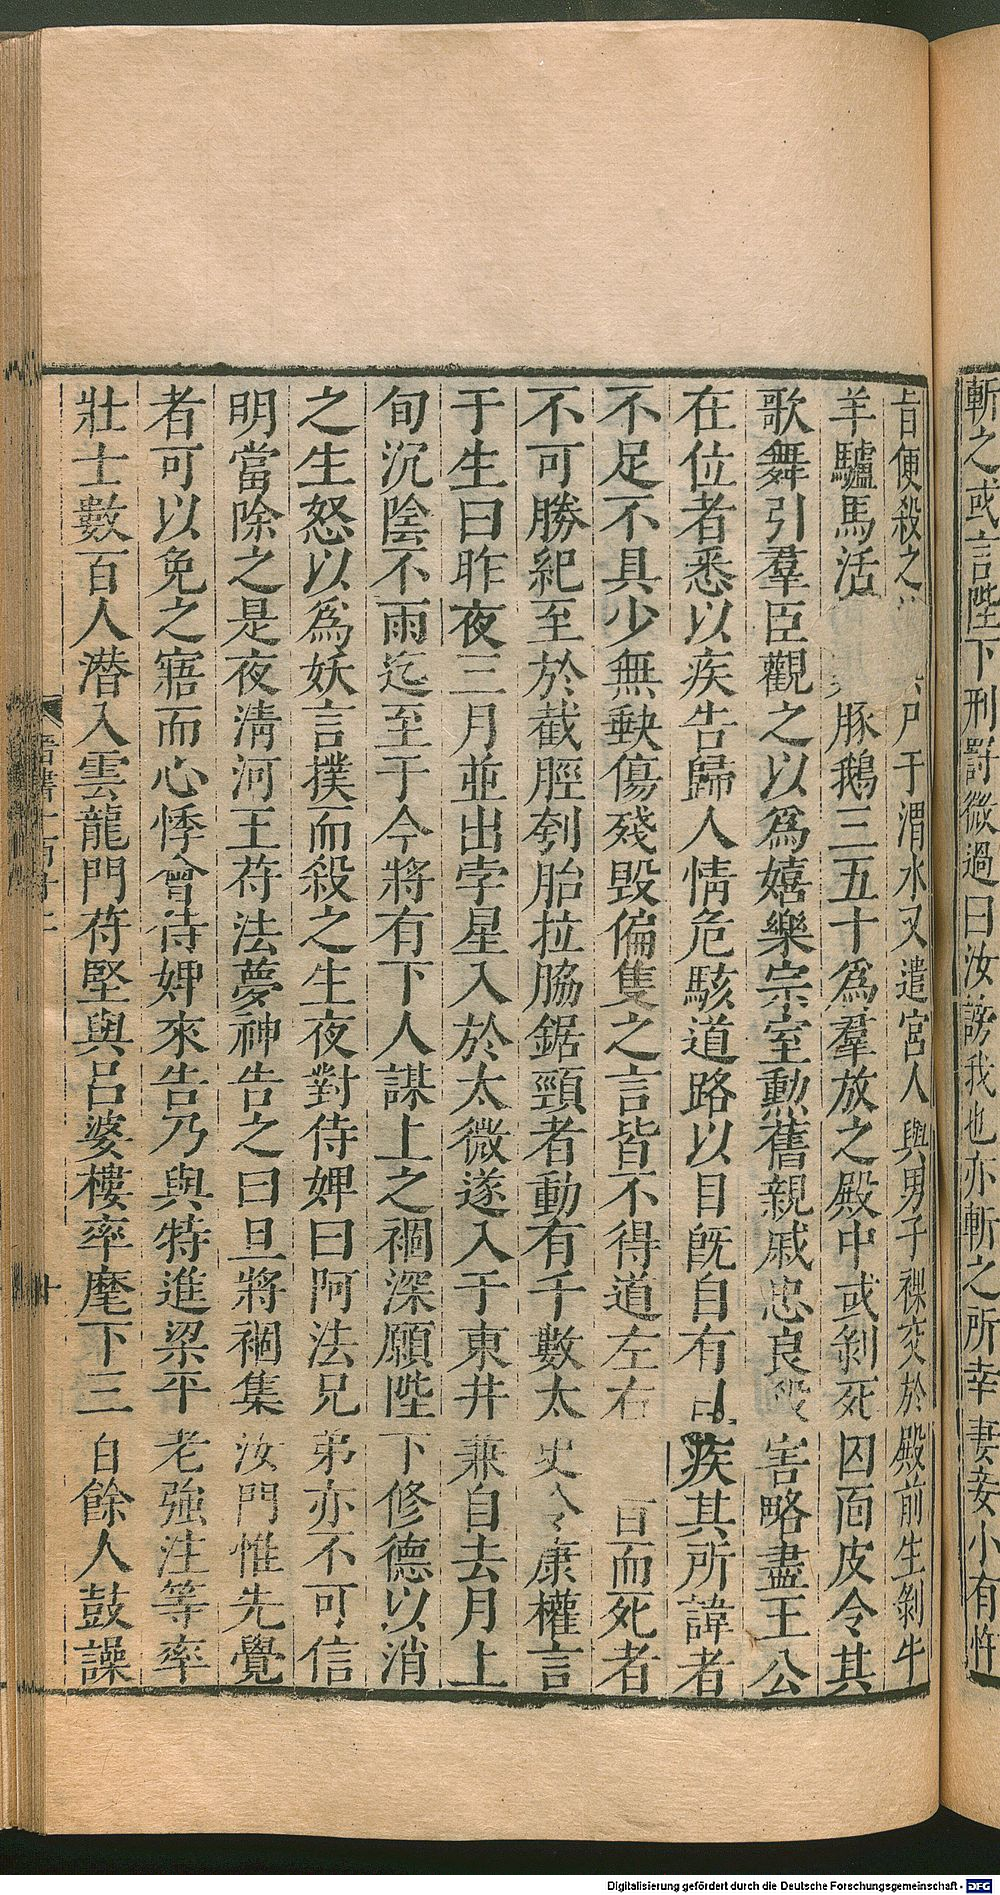 斬之或言陛下刑罰微過曰汝謗我也亦斬之所幸妻妾小有忤
旨便殺之 尸于渭水又遣宮人與男子裸交於殿前生剝牛
羊驢馬活 豚鵝三五十爲羣放之殿中或剝死囚面皮令其
歌舞引羣臣觀之以爲嬉樂宗室勲舊親戚忠良殺害略盡王公
在位者悉以疾告歸人情危駭道路以目旣自有 疾其所諱者
不足不具少無缺傷殘毀偏隻之言皆不得道左右 而死者
不可勝紀至於截脛刳胎拉脇鋸頸者動有千數太史令康權言
于生曰昨夜三月並出孛星入於太微遂入于東井兼自去月上
旬沉陰不雨迄至于今將有下人謀上之禍深願陛下修德以消
之生怒以爲妖言撲而殺之生夜對侍婢曰阿法兄弟亦不可信
明當除之是夜淸河王苻法夢神告之曰旦將禍集汝門惟先覺
者可以免之寤而心悸會侍婢來告乃與特進梁平老強汪等率
壯士數百人潜入雲龍門苻堅與呂婆樓率麾下三百餘人鼓譟
Digitalisierung gefördert durch die Deutsche Forschungsgemeinschaft - DFG